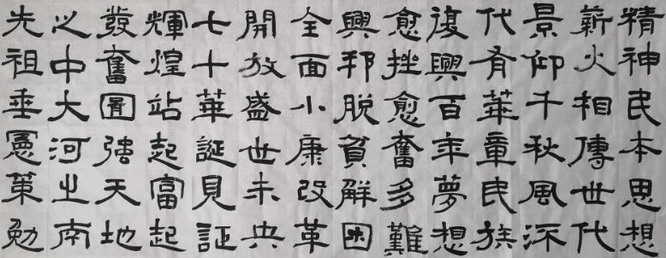 精神民本思想
薪火相傳世代
景仰千秋風流
代有華章民族
復興百年夢想
愈挫愈奮多難
興邦脫貧解困
全面小康改革
開放盛世未央
七十華誕見証
輝煌站起富起
發奮圖強天地
之中大河之南
先祖垂憲策勉